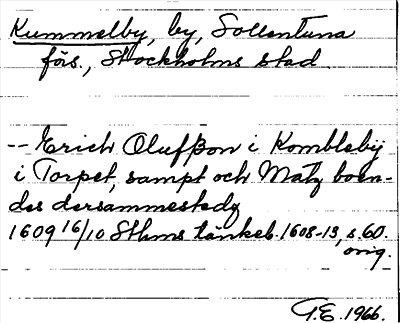 Kummelby, by, Sollentuna
förs., Stockholms stad.
-- Erich Olufßon i Kombleby
i Torpet, sampt och Matz boen-
des dersammestedz
1609 16/10 Sthms tänkeb. 1608-13, s. 60.
orig.
G.E. 1966.